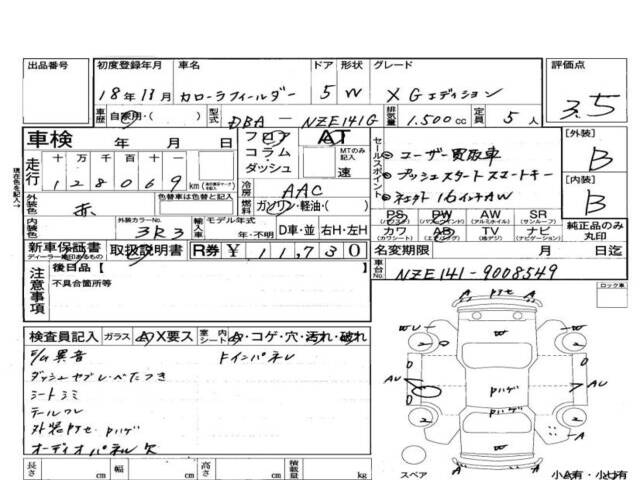 出品番号 初度登録年月 車名 ドア 形状 グレード 評価点
18年11月 カローラフィールダー 5 W X Gエディション 3.5
車歴 自家用・( ) 型式 DBA-NZE141G 排気量 1,500cc 定員 5人
車検 年 月 日 フロア AT
コラム
ダッシュ MTのみ記入 速
走行 十 万 千 百 十 一
128069
現在色を記入→
外装色 赤 色替車は色替と記入
冷房 AAC
燃料 ガソリン・軽油・( )
内装色 外装カラーNo. 3R3 輸入車 モデル年式 年・不明 D車・並 右H・左H
セールスポイント
ユーザー買取車
プッシュスタートスマートキー
16インチAW
PS PW AW SR
(パワステ) (パワーウィンドウ) (アルミホイル) (サンルーフ)
カワ AB TV ナビ
(カワシート) (エアバッグ) (地デジ) (ナビゲーション)
[外装] B
[内装] B
純正品のみ丸印
新車保証書 取扱説明書 R券 ¥11,730
ディーラー捺印あるもの
名変期限 月 日迄
車台No. NZE141-9008549
注意事項
後日品[ ]
不具合箇所等
ロック車
検査員記入 ガラス A・X要ス 室内シート A・コゲ・穴・汚れ・破れ
異音 ドインパネレ
ダッシュセブレ・べたつき
シートシミ
テールワレ
外装PTセ・Pハゲ
オーディオパネル欠
A PTセ A
W
WU A
2 2
Pハゲ
AU AU
Pハゲ
2 2
W
A A
スペア 小A有・小U有
長さ cm 幅 cm 高さ cm 積載量 kg